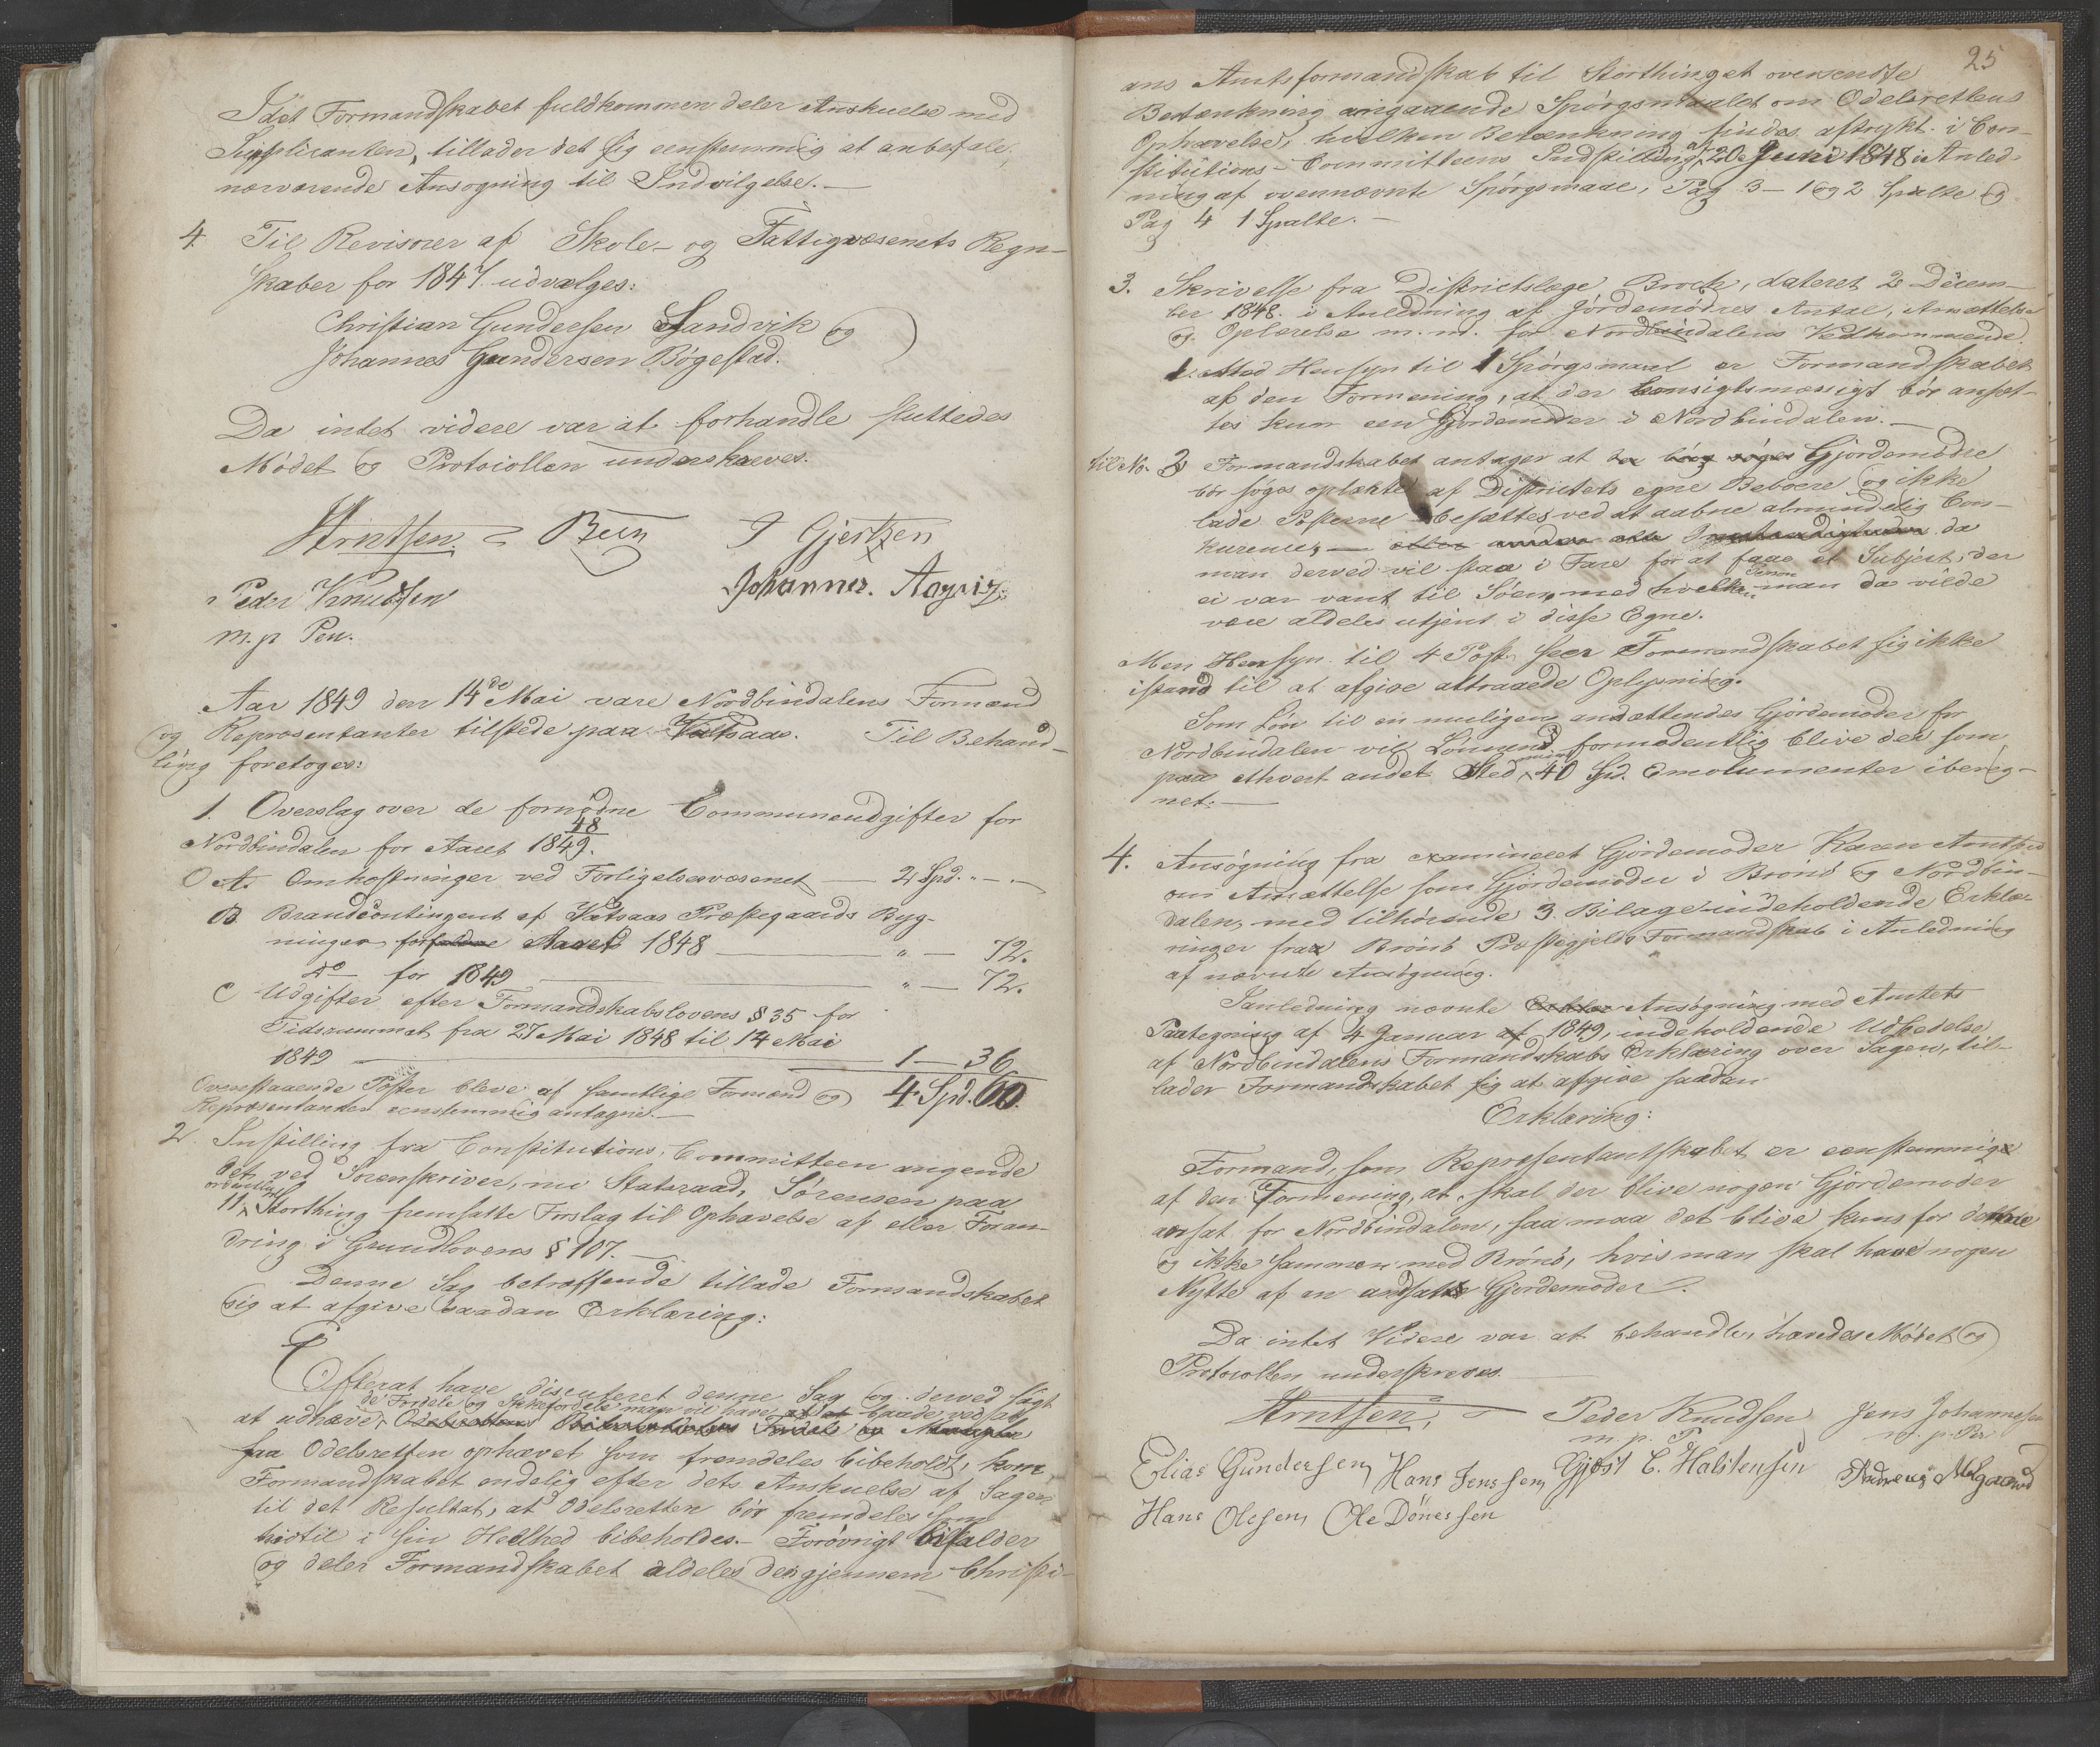 Idet Formandskabet fuldkommen deler Anskuelse med
Supplicanten, tillader det sig eenstemmig at anbefale
nærværende Ansøgning til Indvilgelse. —
4. Til Revisorer af Skole- og Fattigvæsenets Regn-
skaber for 1847 udvælges:
Christian Gundersen Sandvik og
Johannes Gundersen Bøgestad.
Da intet videre var at forhandle sluttedes
Mødet og Protocollen underskreves.
Arntsen. Been J Gjertzen
Peder Knudsen Johannes.
m. p Pen.
Aar 1849 den 14de Mai vare Nordbindalens Formænd
og Repræsentanter tilstede paa Vatsaas. Til Behand-
ling foretoges:
1. Overslag over de fornødne Communeudgifter for
48
Nordbindalen for Aaret 1849.
A. Omkostninger ved Forligelsesvæsenet — 2 Spd. " — "
B Brandcontingent af Vatsaas Præstegaards Byg-
ninger Aaret 1848 — " — 72.
do for 1849 — " — 72.
C Udgifter efter Formandskabslovens § 35 for
Tidsrummet fra 27 Mai 1848 til 14 Mai
1849 — 1 — 36
Ovenstaaende Poster bleve af samtlige Formænd og 4 Spd. 60.
Repræsentanter eenstemmig antagne. —
2. Instilling fra Constitutions Committeen angende
det ved Sorenskriver, nu Statsraad, Sørensen paa
ordentlig
11 Storthing fremsatte Forslag til Ophævelse af eller Foran-
dring i Grundlovens § 107. —
Denne Sag betræffende tillade Formandskabet
sig at afgive saadan Erklæring:
Efterat have discuteret denne Sag og derved søgt
de Fordele og man vil have baade ved at
at udhæve
faa Odelsretten ophævet som fremdeles bibeholdt, kom
Formandskabet endelig efter dets Anskuelse af Sagen
til det Resultat, at Odelsretten bør fremdeles som
hidtil i sin Heelhed bibeholdes. — Forøvrigt bifalder
og deler Formandskabet aldeles den gjennem Christi-
25
ans Amtsformandskab til Storthinget oversendte
Betænkning angaaende Spørgsmaalet om Odelsrettens
Ophævelse, hvilken Betænkning findes aftrykt i Con-
stitutions-Committeens Indstilling af 20 Juni 1848 i Anled-
ning af ovennævnte Spørgsmaal, Pag 3 — 1 og 2 Spalte og
Pag 4 1 Spalte. —
3. Skrivelse fra Districtslæge Broch, dateret 2 Decem-
ber 1848. i Anledning af Jordemødres Antal, Ansættelse
og Oplærelse m. m. for Nordbindalens Vedkommende.
1. Med Hensyn til 1 Spørgsmaal er Formandskabet
af den Formening, at der hensigtsmæssigt bør ansæt-
tes kun een Gjordemoder i Nordbindalen. —
til No. 2 Formandskabet antager at Gjordemødre
bør søges oplærte af Districtets egne Beboere og ikke
lade Posterne besættes ved at aabne almindelig Con-
kurence, — da
man derved vil staa i Fare for at faae et Subject, der
ei var vant til Søen, med hvilken Person man da vilde
være aldeles utjent i disse Egne.
Men Hensyn til 4 Post seer Formandskabet sig ikke
istand til at afgive attraaede Oplysning.
Som Løn til en muligens ansættendes Gjordemoder for
Nordbindalen vil Lønnen formodentlig blive der som
paa ethvert andet Sted 40 Spd. Emolumenter ibereg-
net. —
4. Ansøgning fra examineret Gjordemoder Karen
om Ansættelse som Gjordemoder i Brønø og Nordbin-
dalen, med tilhørende 3 Bilage indeholdende Erklæ-
ringer fra Brønø Præstegjelds Formandskab i Anledning
af nævnte Ansøgning.
Ianledning nævnte Ansøgning med Amtets
Paategning af 4 Januar 1849, indeholdende Udbedelse
af Nordbindalens Formandskabs Erklæring over Sagen, til-
lader Formandskabet sig at afgive saadan
Erklæring:
Formand, som Repræsentantskabet er eenstemmige
af den Formening, at skal der blive nogen Gjordemoder
ansat for Nordbindalen, saa maa det blive kuns for denne
og ikke sammen med Brønø, hvis man skal have nogen
Nytte af en ansat Gjordemoder.
Da intet Videre var at behandle, hævedes Mødet og
Protocollen underskreves.
Arntsen, Peder Knudsen Jens Johannesen
m. p. P. m. p. Pen
Elias Gundersen Hans Jenssen Gjøst C. Halstensen Andreas
Hans Olesen Ole Dønessen